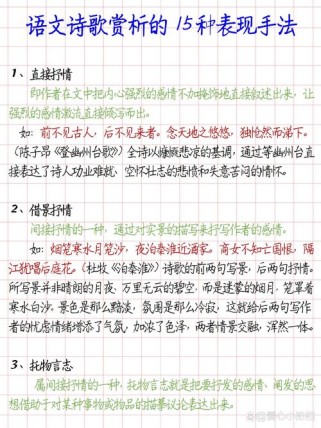 语文诗歌赏析的15种表现手法
1、直接抒情
即作者在文中把内心强烈的感情不加掩饰地直接叙述出来，让
强烈的感情激流直接倾泻而出。
如：前不见古人，后不见来者。念天地之悠悠，独怆然而涕下。
（陈子昂《登幽州台歌》）全诗以慷慨悲凉的基调，通过等幽州台直
接表达了诗人功业难就，空怀壮志的悲愤和失意苦闷的情怀。
2、借景抒情
间接抒情的一种，通过对实景的描写来抒写作者的感情。
如：烟笼寒水月笼沙，夜泊秦淮近酒家。商女不知亡国恨，隔
江犹唱后庭花。（杜牧《泊秦淮》）诗歌的前两句写景，后两句抒情。
所写景并非晴朗的月夜，万里无云的碧空，而是迷蒙的烟月，笼罩着
寒水白沙，景色是那么黯淡，氛围是那么冷寂，这就给后两句写作
者的忧虑情绪增添了气氛，加浓了色泽，两者情景交融，浑然一体。
3、托物言志
属间接抒情的一种，托物言志就是把要抒发的感情、阐发的思
想借助于对某种事物或物品的描摹议论表达出来。